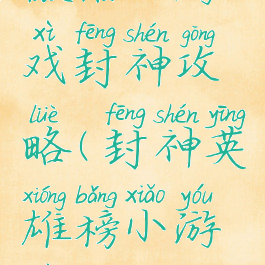 xì fēng shén gōng
戏封神攻
lüè fēng shén yīng
略(封神英
xióng bǎng xiǎo yóu
雄榜小游